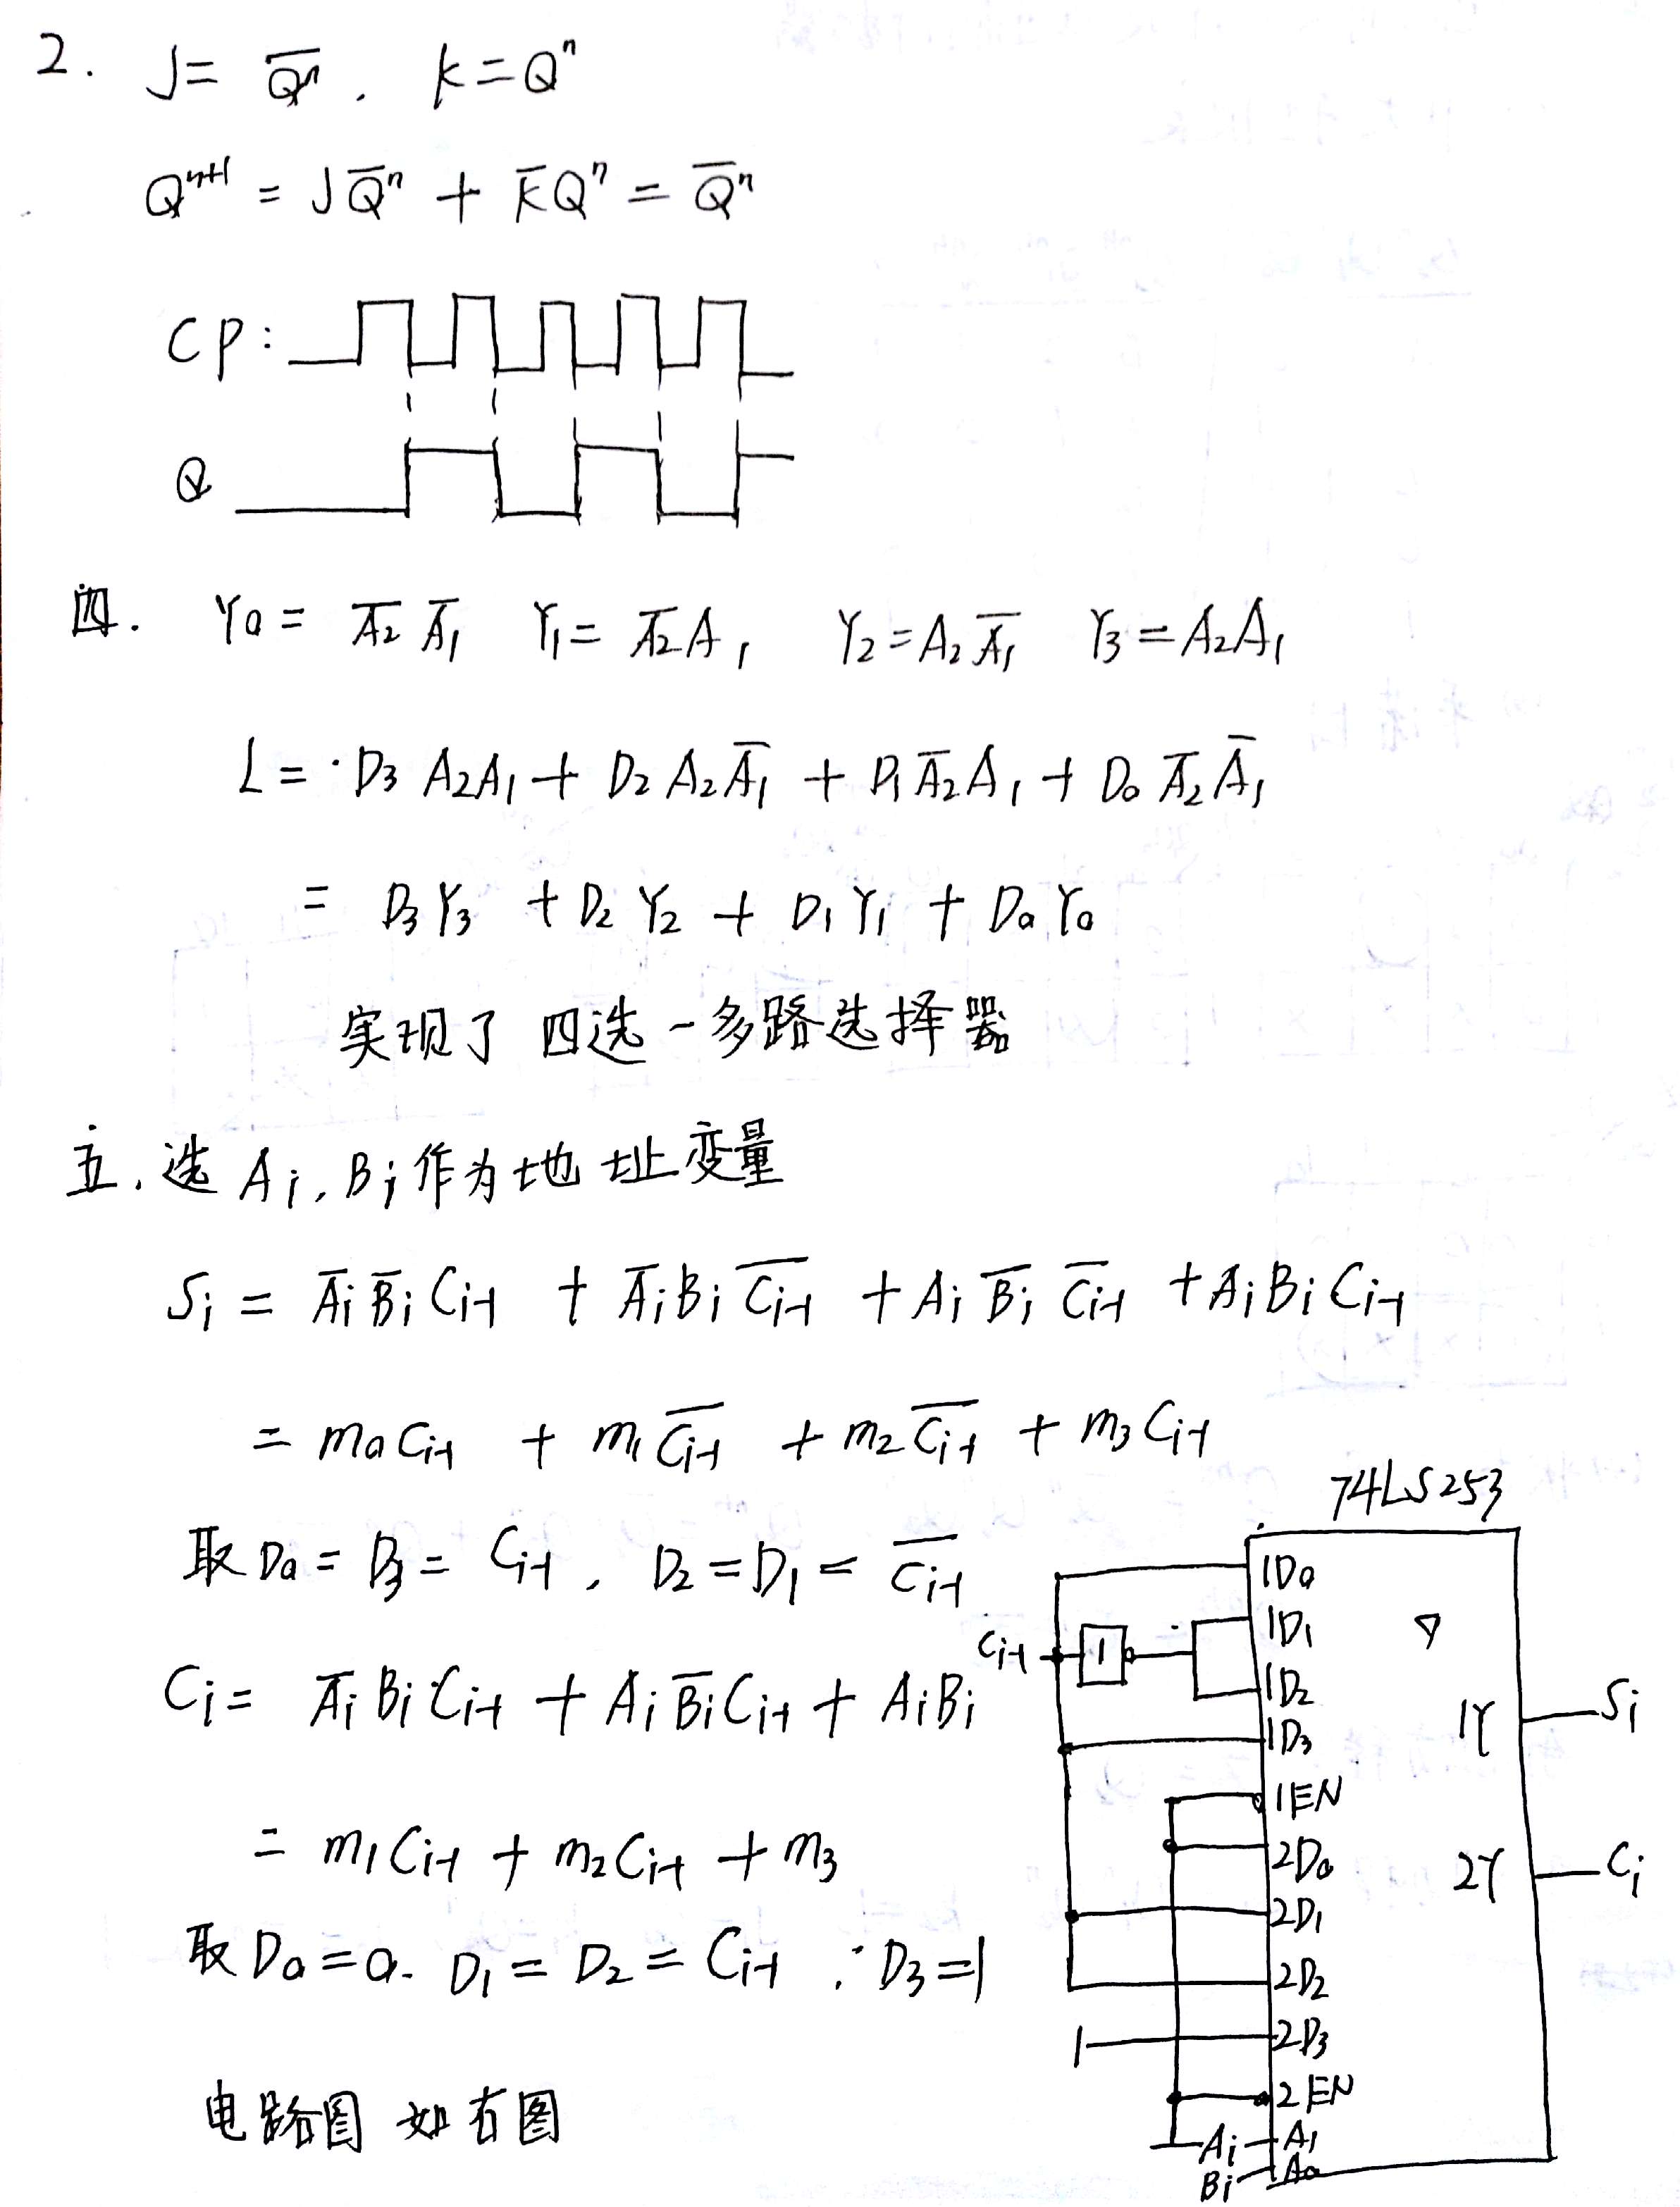 2. J = Q̅ⁿ. K = Qⁿ
Qⁿ⁺¹ = J Q̅ⁿ + K̅ Qⁿ = Q̅ⁿ
CP:
Q
四. Y₀ = A̅₂ A̅₁  Y₁ = A̅₂ A₁,  Y₂ = A₂ A̅₁  Y₃ = A₂A₁
L = D₃ A₂A₁ + D₂ A₂ A̅₁ + D₁ A̅₂ A₁ + D₀ A̅₂ A̅₁
= D₃Y₃ + D₂Y₂ + D₁Y₁ + D₀Y₀
实现了 四选一多路选择器
五. 选 Ai, Bi 作为地址变量
Si = A̅i B̅i Ci-1 + A̅i Bi C̅i-1 + Ai B̅i C̅i-1 + Ai Bi Ci-1
= m₀Ci-1 + m₁C̅i-1 + m₂C̅i-1 + m₃Ci-1
取 D₀ = D₃ = Ci-1, D₂ = D₁ = C̅i-1
Ci = A̅i Bi Ci-1 + Ai B̅i Ci-1 + AiBi
= m₁Ci-1 + m₂Ci-1 + m₃
取 D₀ = 0. D₁ = D₂ = Ci-1 . D₃ = 1
电路图 如右图
74LS253
1D₀
1D₁ ▽
Ci-1 1
1D₂
1Y Si
1D₃
1EN
2D₀
2Y Ci
2D₁
2D₂
1 2D₃
2EN
Ai A₁
Bi A₀